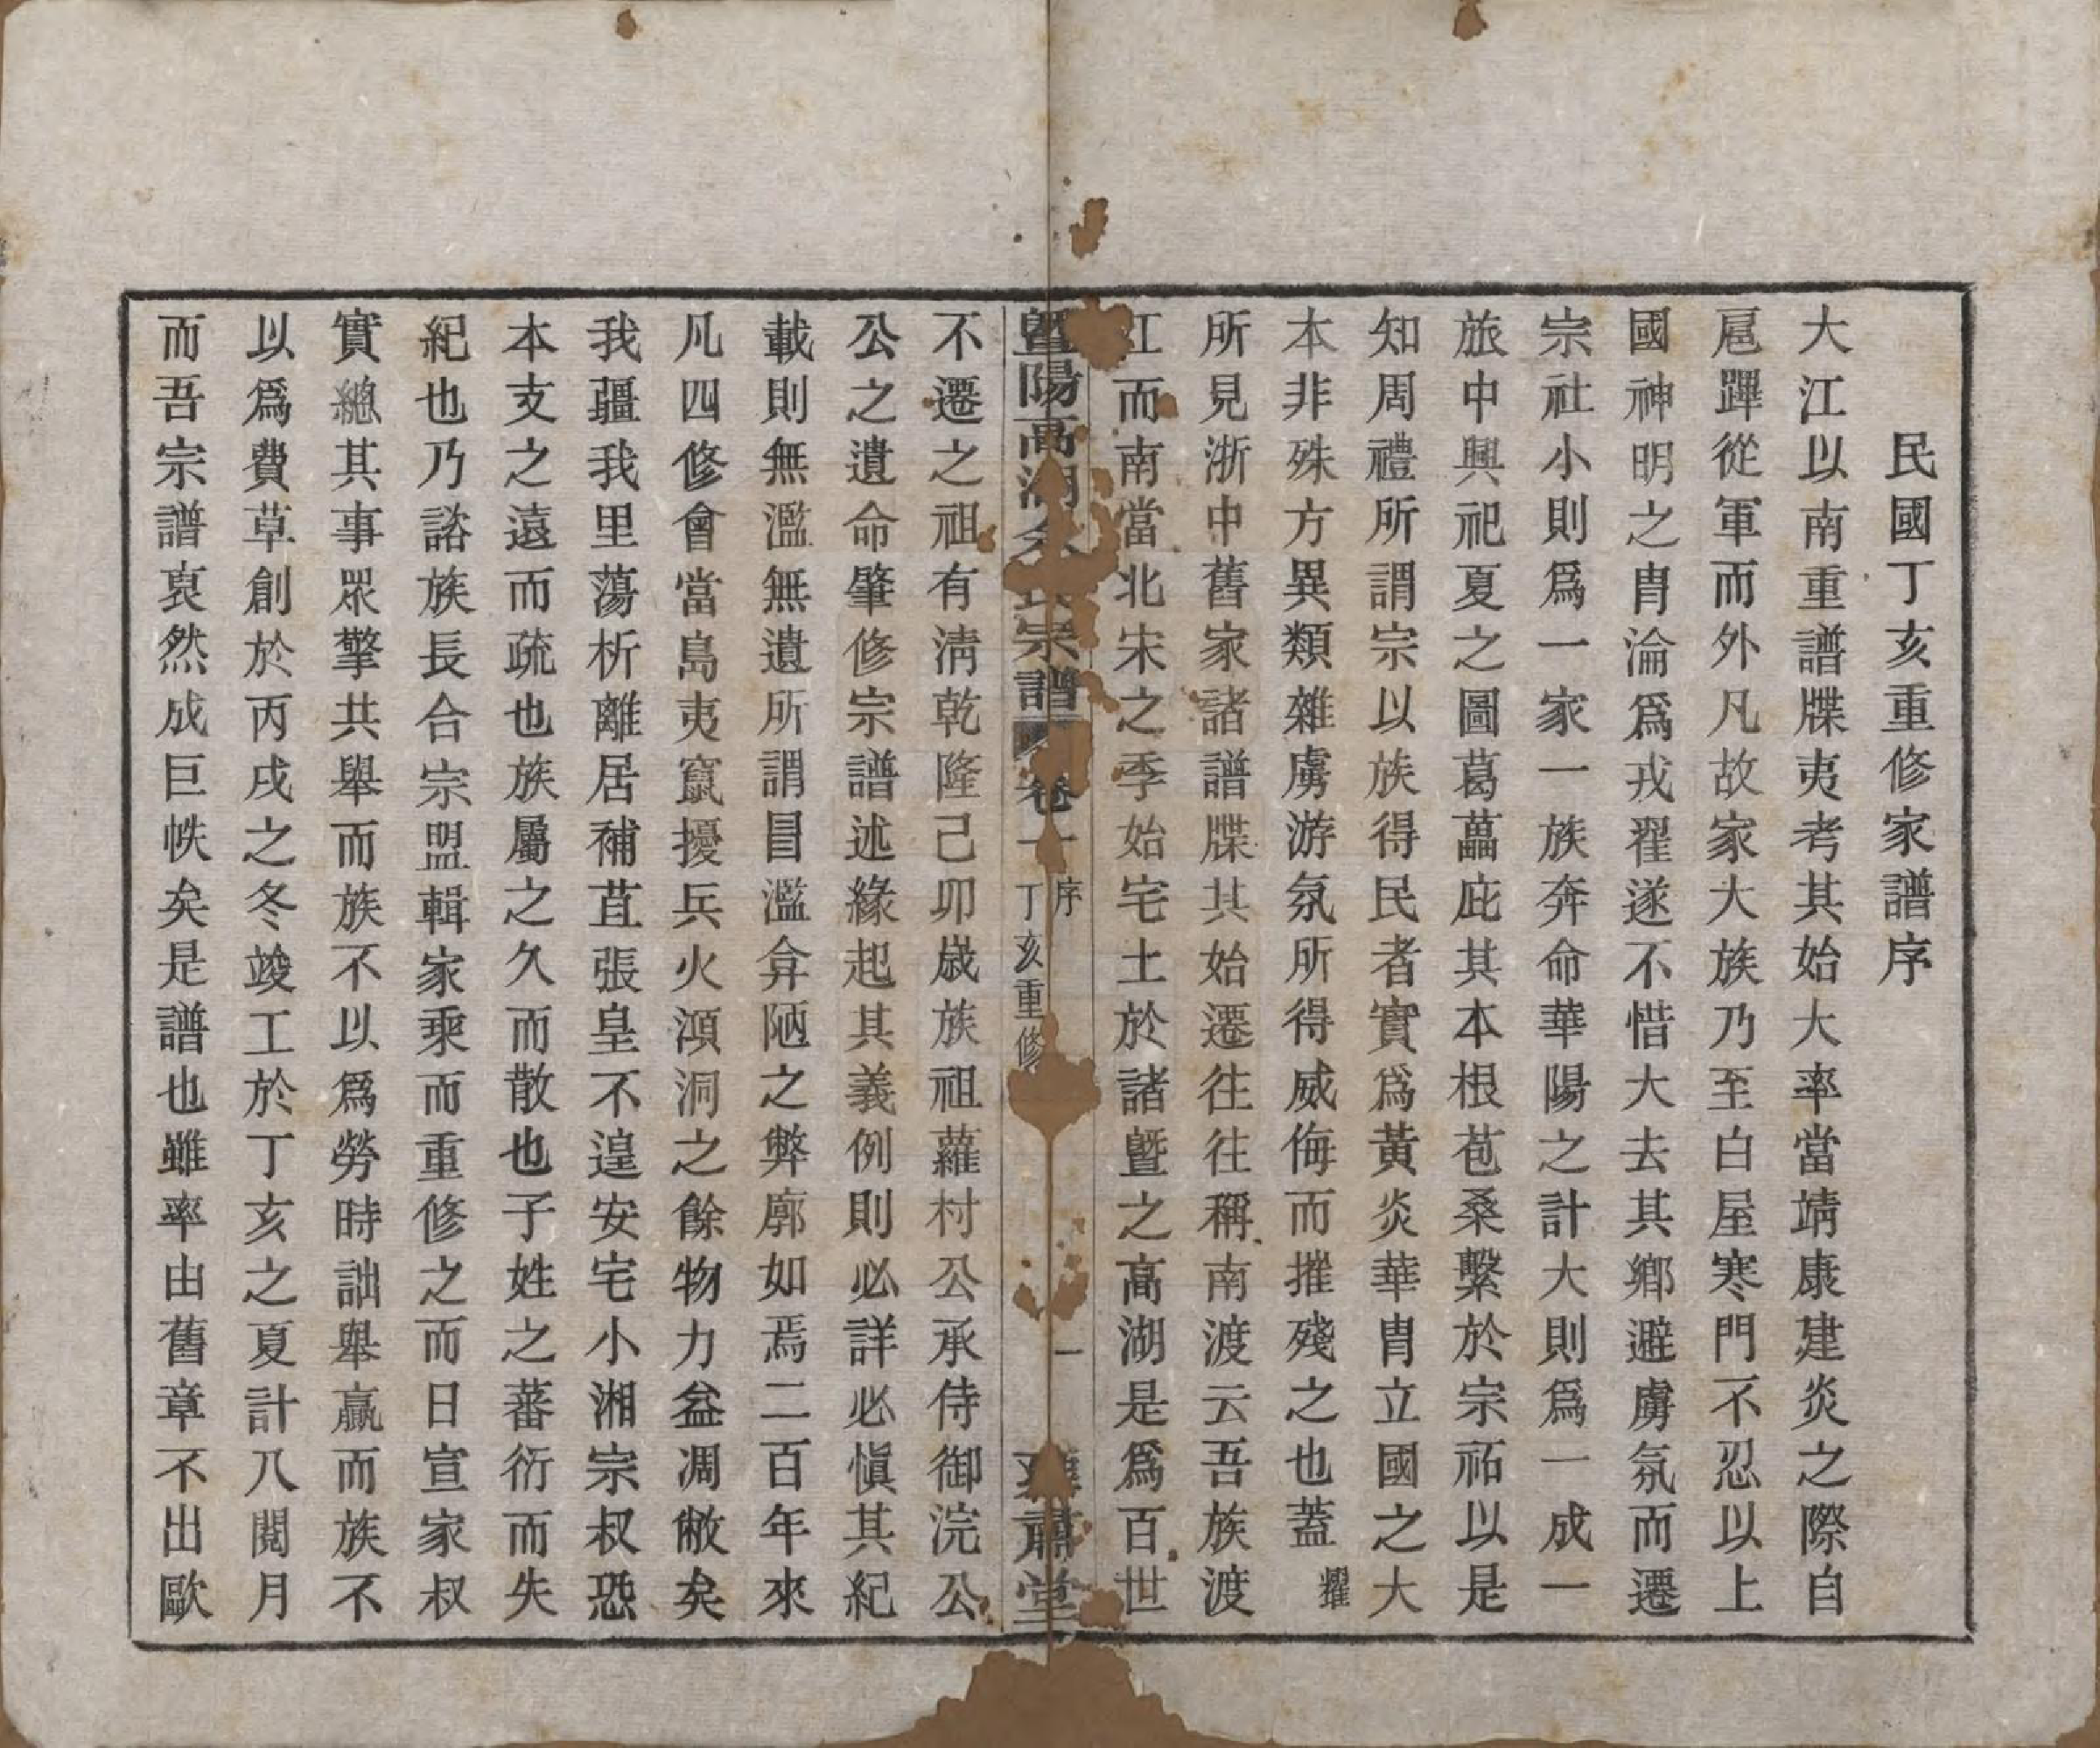 民國丁亥重修家譜序
大江以南重譜牒夷考其始大率當靖康建炎之際自
扈蹕從軍而外凡故家大族乃至白屋寒門不忍以上
國神明之胄淪爲戎翟遂不惜大去其鄉避虜氛而遷
宗社小則爲一家一族奔命華陽之計大則爲一成一
旅中興祀夏之圖葛藟庇其本根苞桑繫於宗祏以是
知周禮所謂宗以族得民者實爲黃炎華胄立國之大
本非殊方異類雜虜游氛所得威侮而摧殘之也蓋耀
所見浙中舊家諸譜牒其始遷往往稱南渡云吾族渡
江而南當北宋之季始宅土於諸暨之高湖是爲百世
暨陽高湖余氏宗譜 卷一 序 丁亥重修 一 肅堂
不遷之祖有淸乾隆己卯歲族祖蘿村公承侍御浣公
公之遺命肇修宗譜述緣起其義例則必詳必愼其紀
載則無濫無遺所謂冒濫弇陋之弊廓如焉二百年來
凡四修會當島夷竄擾兵火澒洞之餘物力益凋敝矣
我疆我里蕩析離居補苴張皇不遑安宅小湘宗叔恐
本支之遠而疏也族屬之久而散也子姓之蕃衍而失
紀也乃諮族長合宗盟輯家乘而重修之而日宣家叔
實總其事眾擎共舉而族不以爲勞時詘舉贏而族不
以爲費草創於丙戌之冬竣工於丁亥之夏計八閱月
而吾宗譜裒然成巨帙矣是譜也雖率由舊章不出歐